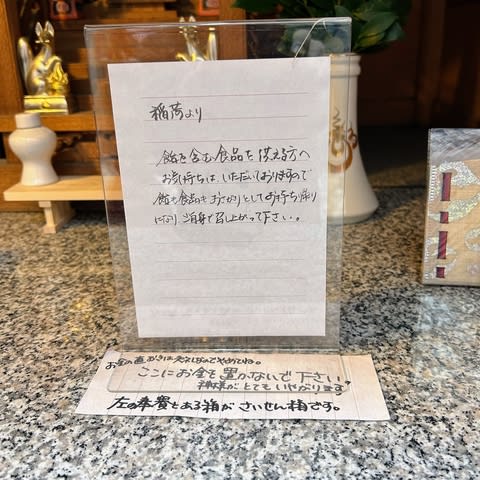 稲荷より
飴を含む食品を供える方へ
お気持ちは、いただいておりますので
飴も食品もおさがりとしてお持ち帰り
になり、ご自身で召し上がって下さい。
お金の直おきは
ここにお金を置かないで下さい。
神様がとてもいやがります
左の奉賽とある箱がさいせん箱です。